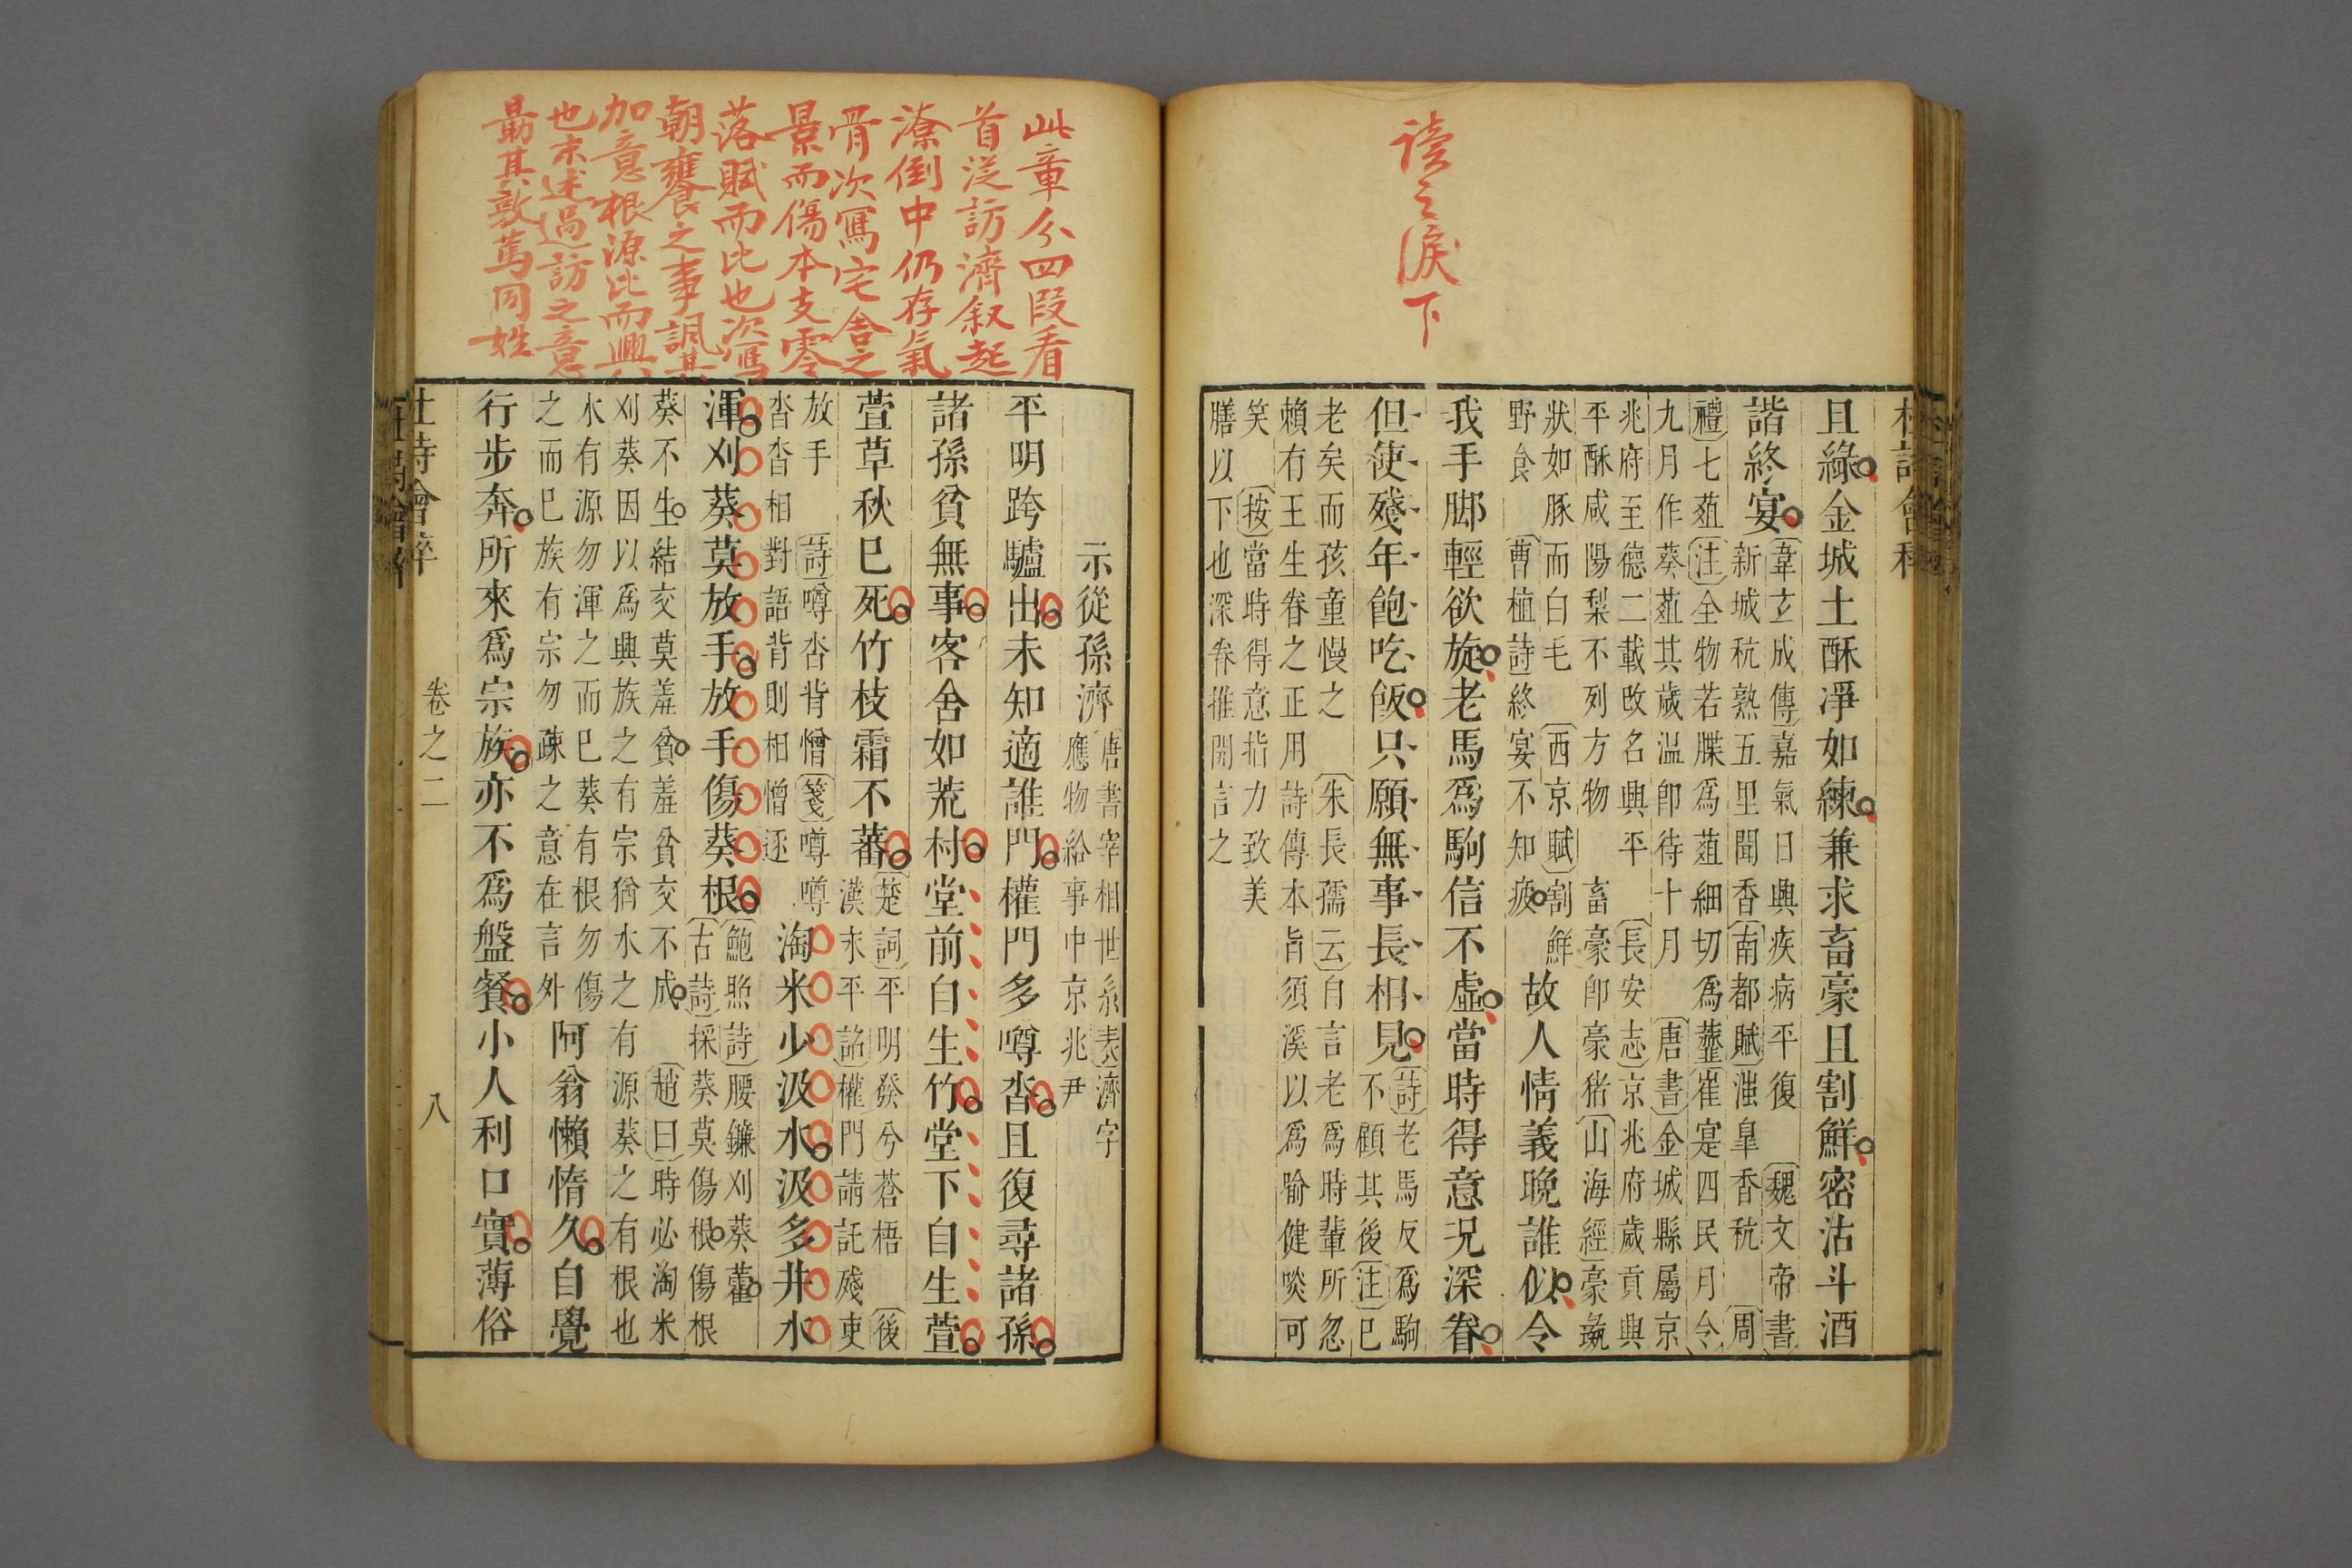 讀之淚下
且綠金城土酥凈如練兼求畜豪且割鮮密沽斗酒
諧終宴
韋玄成傳嘉氣日興疾病平復 魏文帝書
新城秔熟五里聞香南都賦滍皐香秔 周
禮七葅注全物若䐑爲葅細切爲虀崔寔四民月令
九月作葵葅其歲温卽待十月 唐書金城縣屬京
兆府至德二載改名興平 長安志京兆府歲貢興
平酥咸陽梨不列方物 畜豪卽豪猪山海經豪彘
狀如豚而白毛 西京賦割鮮
野食 曹植詩終宴不知疲
故人情義晚誰似令
我手脚輕欲旋老馬爲駒信不虛當時得意况深眷
但使殘年飽吃飯只願無事長相見
詩老馬反爲駒
不顧其後注已
老矣而孩童慢之 朱長孺云自言老爲時輩所忽
賴有王生眷之正用詩傳本旨須溪以爲喻健啖可
笑 按當時得意指力致美
膳以下也深眷推開言之
此章分四段看
首從訪濟叙起
潦倒中仍存氣
骨次寫宅舍之
景而傷本支零
落賦而比也次寫
朝饔之事諷其
加意根源比而興
也末述過訪之意
勗其敦篤同姓
示從孫濟
唐書宰相世系表濟字
應物給事中京兆尹
平明跨驢出未知適誰門權門多噂沓且復尋諸孫
諸孫貧無事客舍如荒村堂前自生竹堂下自生萱
萱草秋已死竹枝霜不蕃
楚詞平明發兮蒼梧 後
漢永平詔權門請託殘吏
放手 詩噂沓背憎箋噂噂
沓沓相對語背則相憎逐
淘米少汲水汲多井水
渾刈葵莫放手放手傷葵根
鮑照詩腰鎌刈葵藿
古詩採葵莫傷根傷根
葵不生結交莫羞貧羞貧交不成 趙曰時必淘米
刈葵因以爲興族之有宗猶水之有源葵之有根也
水有源勿渾之而已葵有根勿傷
之而已族有宗勿疎之意在言外
阿翁懶惰久自覺
行步奔所來爲宗族亦不爲盤餐小人利口實薄俗
卷之二
八